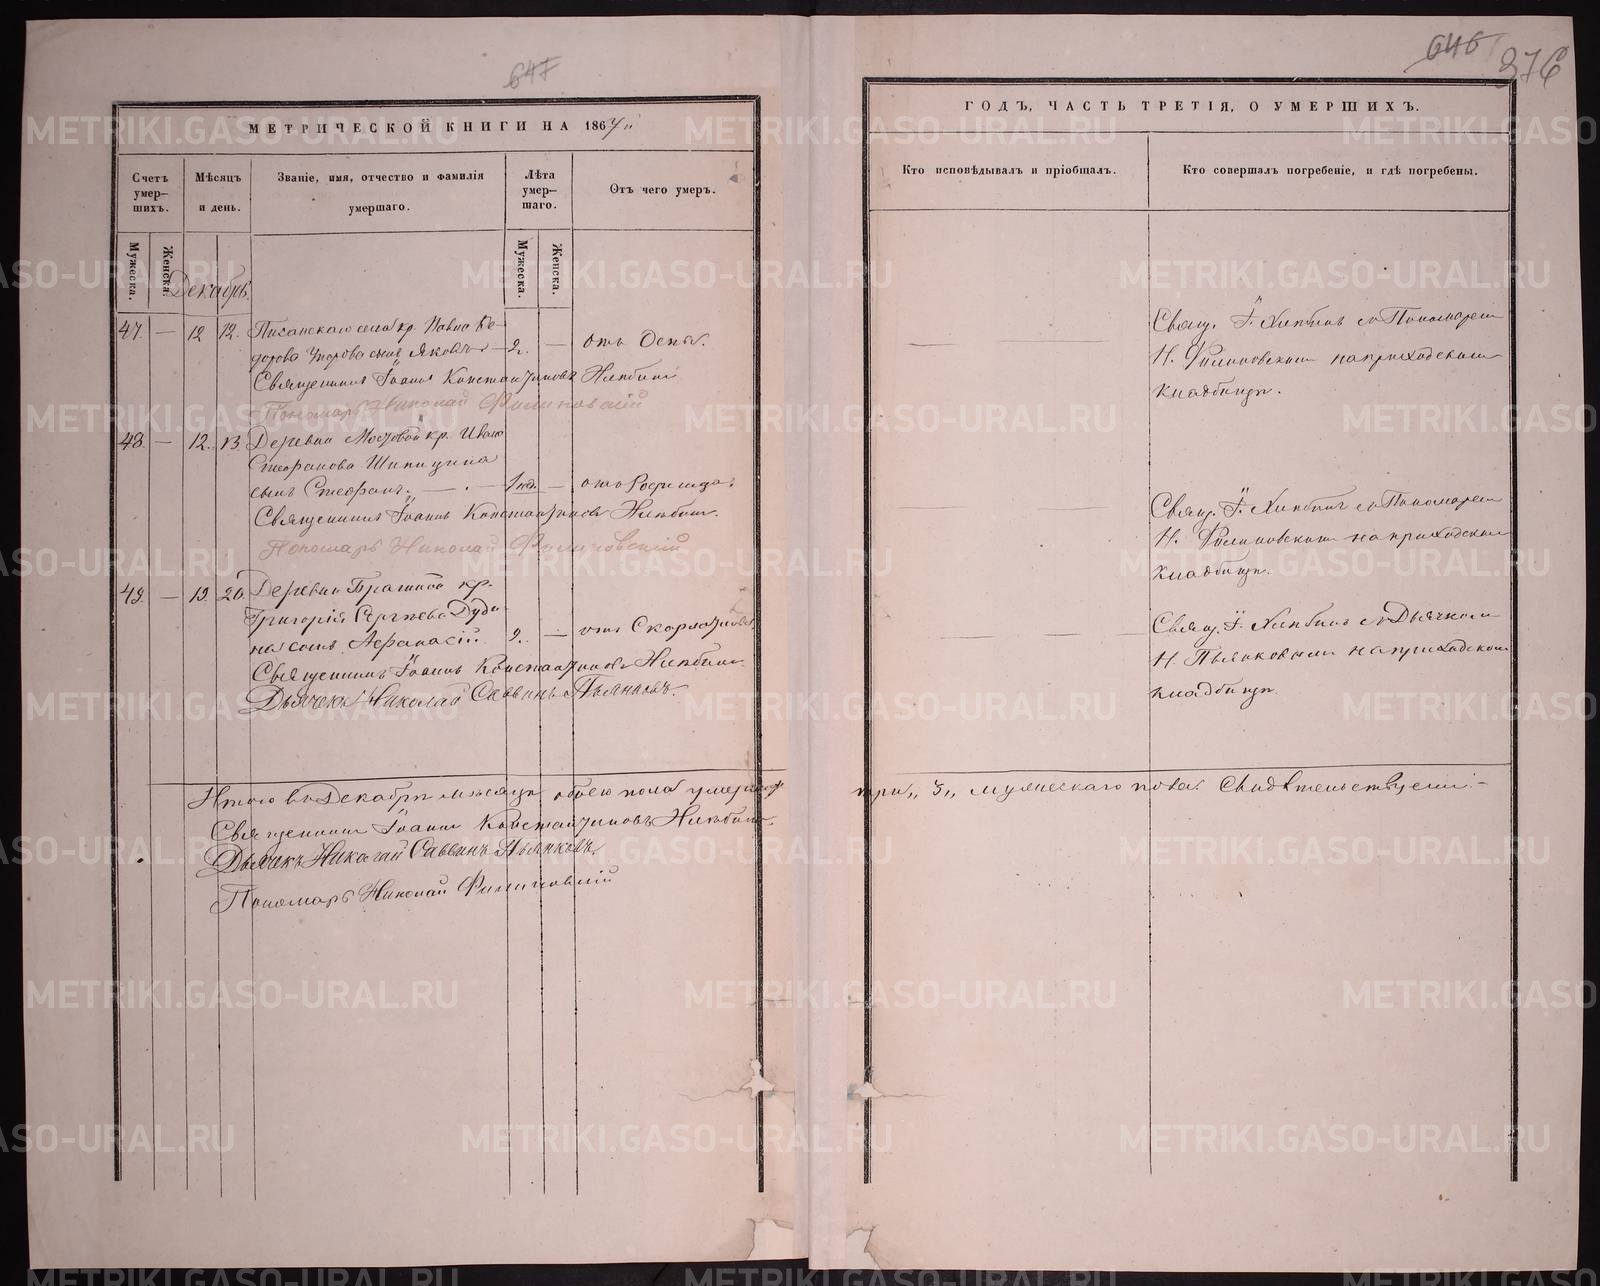 647
646
376
МЕТРИЧЕСКОЙ КНИГИ НА 1867
ГОДЪ, ЧАСТЬ ТРЕТІЯ, О УМЕРШИХЪ.
Счетъ умер-шихъ.
Мѣсяцъ и день.
Званіе, имя, отчество и фамилія умершаго.
Лѣта умер-шаго.
Отъ чего умеръ.
Кто исповѣдывалъ и пріобщалъ.
Кто совершалъ погребеніе, и гдѣ погребены.
Мужеска.
Женска.
Мужеска.
Женска.
Декабрь.
47. — 12 12. кр. Павла Ѳе-
дорова сынъ Яковъ — 2. — отъ Оспы.
Священникъ Іоаннъ Константиновъ Хлѣбинъ
Пономарь Николай Филиповскій
Свящ. І. Хлѣбинъ съ Пономаремъ
Н. Филиповскимъ на приходскомъ
кладбищѣ.
48. — 12. 13. Деревни Мостовой кр. Ивана
Стефанова Шипицина
сынъ Стефанъ. — 1 — отъ Родимца.
Священникъ Іоаннъ Константиновъ Хлѣбинъ.
Пономарь Николай Филиповскій
Свящ. І. Хлѣбинъ съ Пономаремъ
Н. Филиповскимъ на приходскомъ
кладбищѣ.
49. — 19. 20. Деревни кр.
Григорія Сергѣева Дуди-
на сынъ Аѳанасій. 2. — отъ Скорлатины
Священникъ Іоаннъ Константиновъ Хлѣбинъ
Дьячекъ Николай Саввинъ Пьянковъ.
Свящ. І. Хлѣбинъ съ Дьячкомъ
Н. Пьянковымъ на приходскомъ
кладбищѣ.
Итого въ Декабрѣ мѣсяцѣ обоего пола умершихъ три „3„ мужескаго пола. Свидѣтельствуемъ: —
Священникъ Іоаннъ Константиновъ Хлѣбинъ.
Дьячекъ Николай Саввинъ Пьянковъ.
Пономарь Николай Филиповскій
METRIKI.GASO-URAL.RU